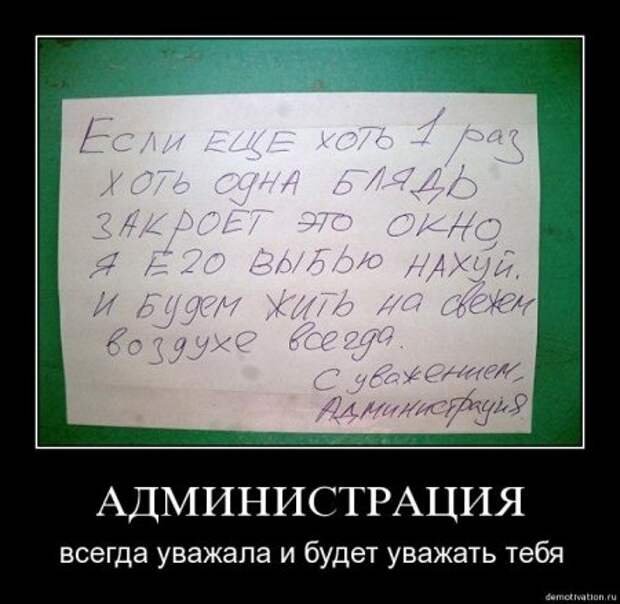 Если ещё хоть 1 раз
хоть одна блядь
закроет это окно
я его выбью нахуй.
и будем жить на свежем
воздухе всегда.
С уважением,
Администрация
АДМИНИСТРАЦИЯ
всегда уважала и будет уважать тебя
demotivation.ru